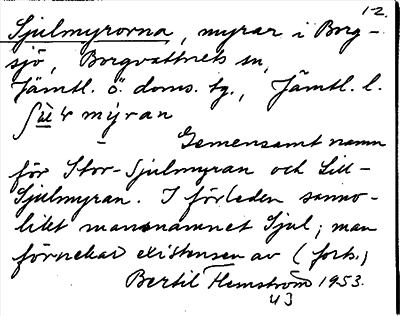 1-2.
Sjulmyrorna, myrar i Borg-
sjö, Borgvattnets sn,
Jämtl. ö. doms. tg., Jämtl. l.
mỳran
Gemensamt namn
för Stor-Sjulmyran och Lill-
Sjulmyran. I förleden sanno-
likt mansnamnet Sjul; man
förnekar existensen av (forts.)
Bertil Flemström 1953.
43